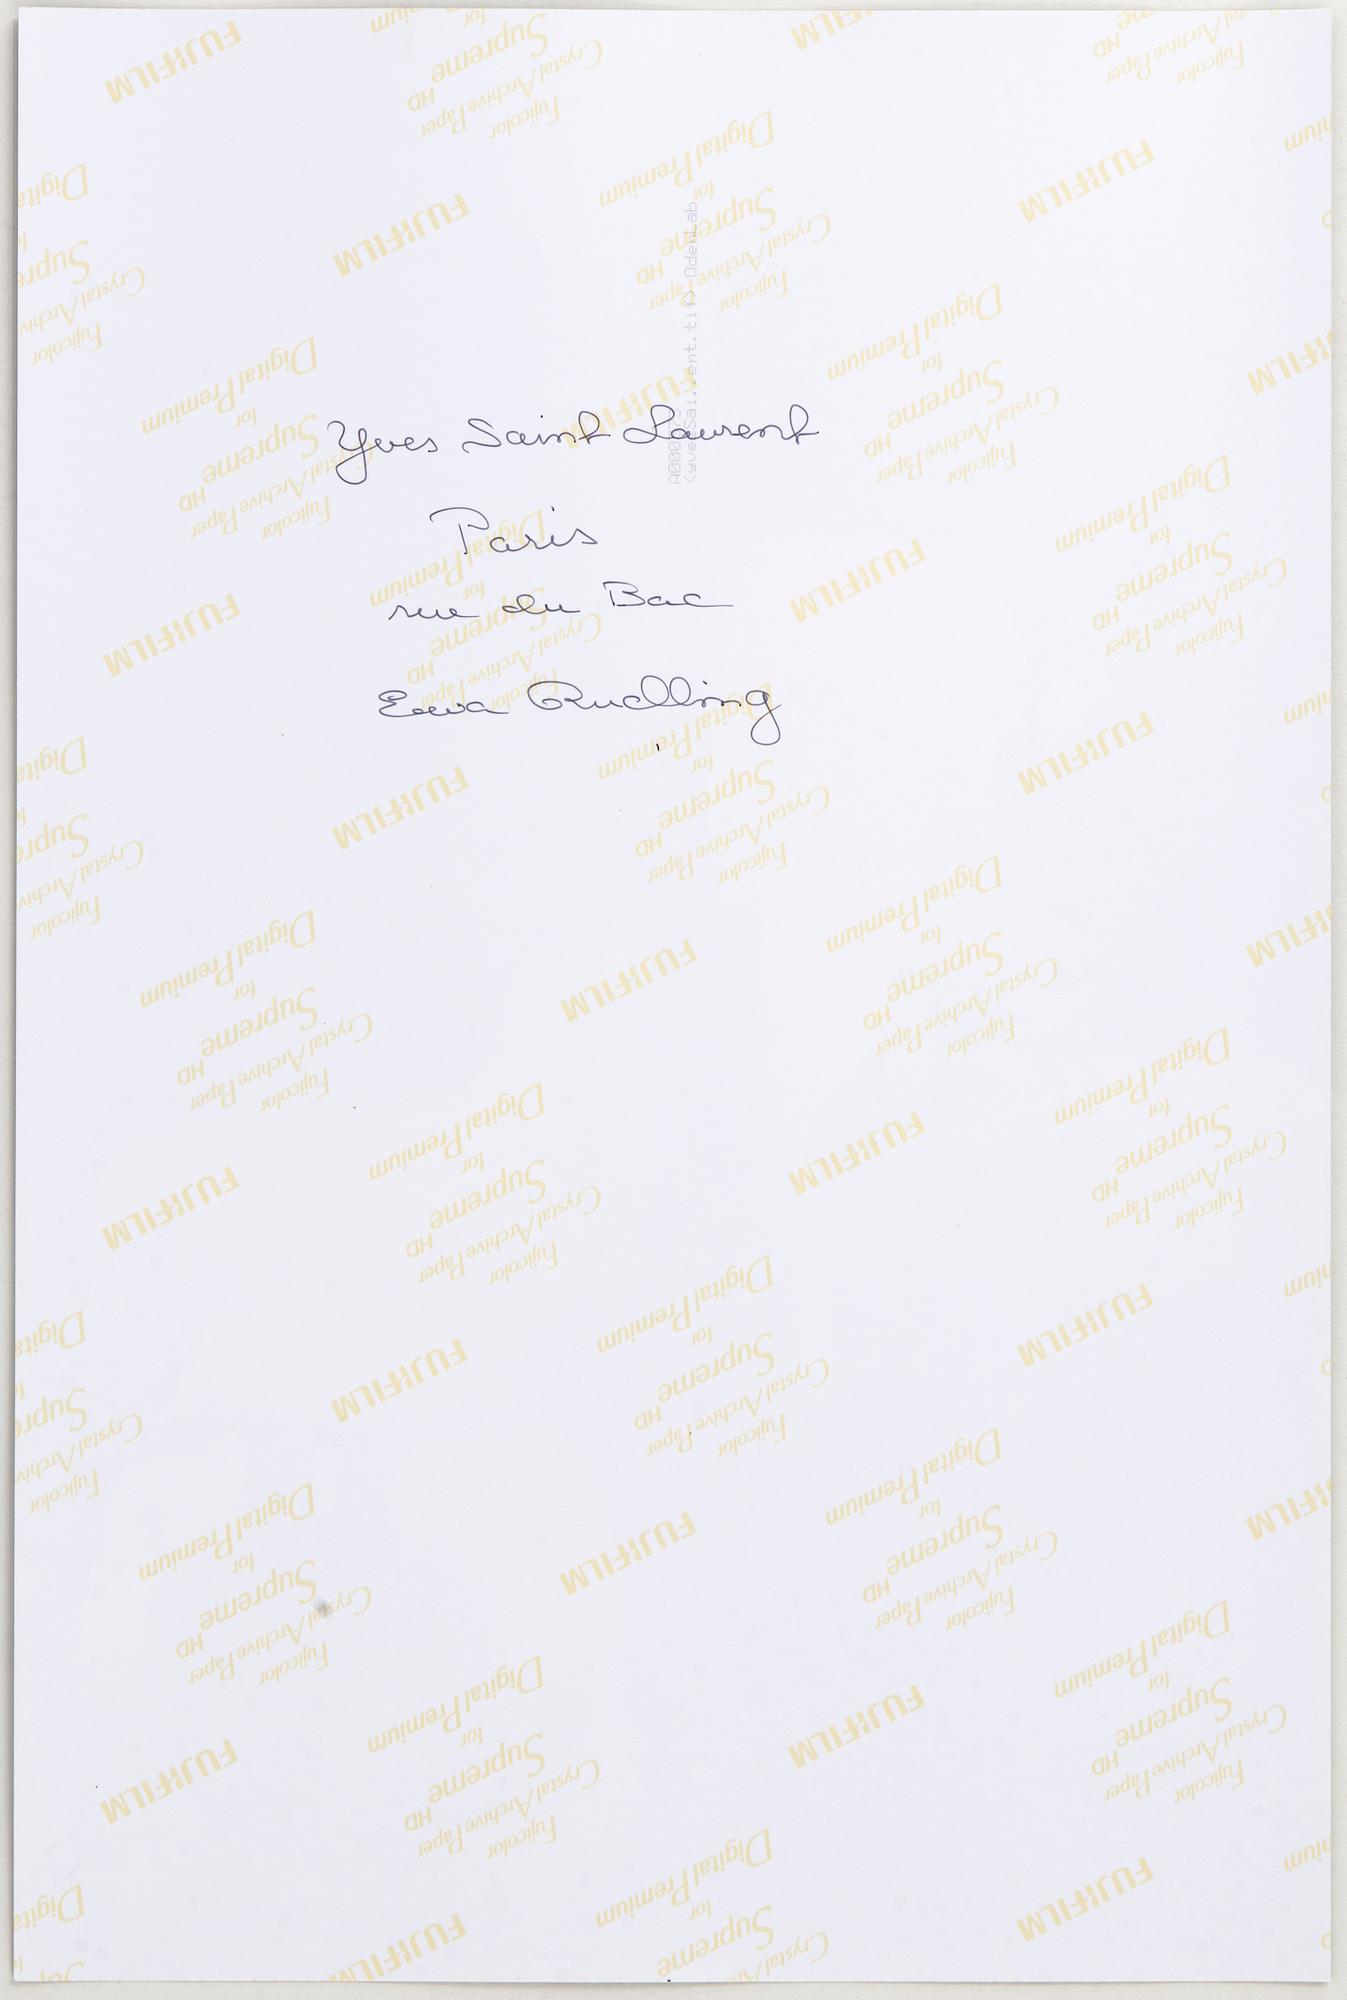 Yves Saint Laurent
Paris
rue du Bac
Ewa Rudling
FUJIFILM
Digital Premium
for
Supreme
HD
Crystal Archive Paper
Fujicolor
<yvesSai..ent.tif> OdenLab